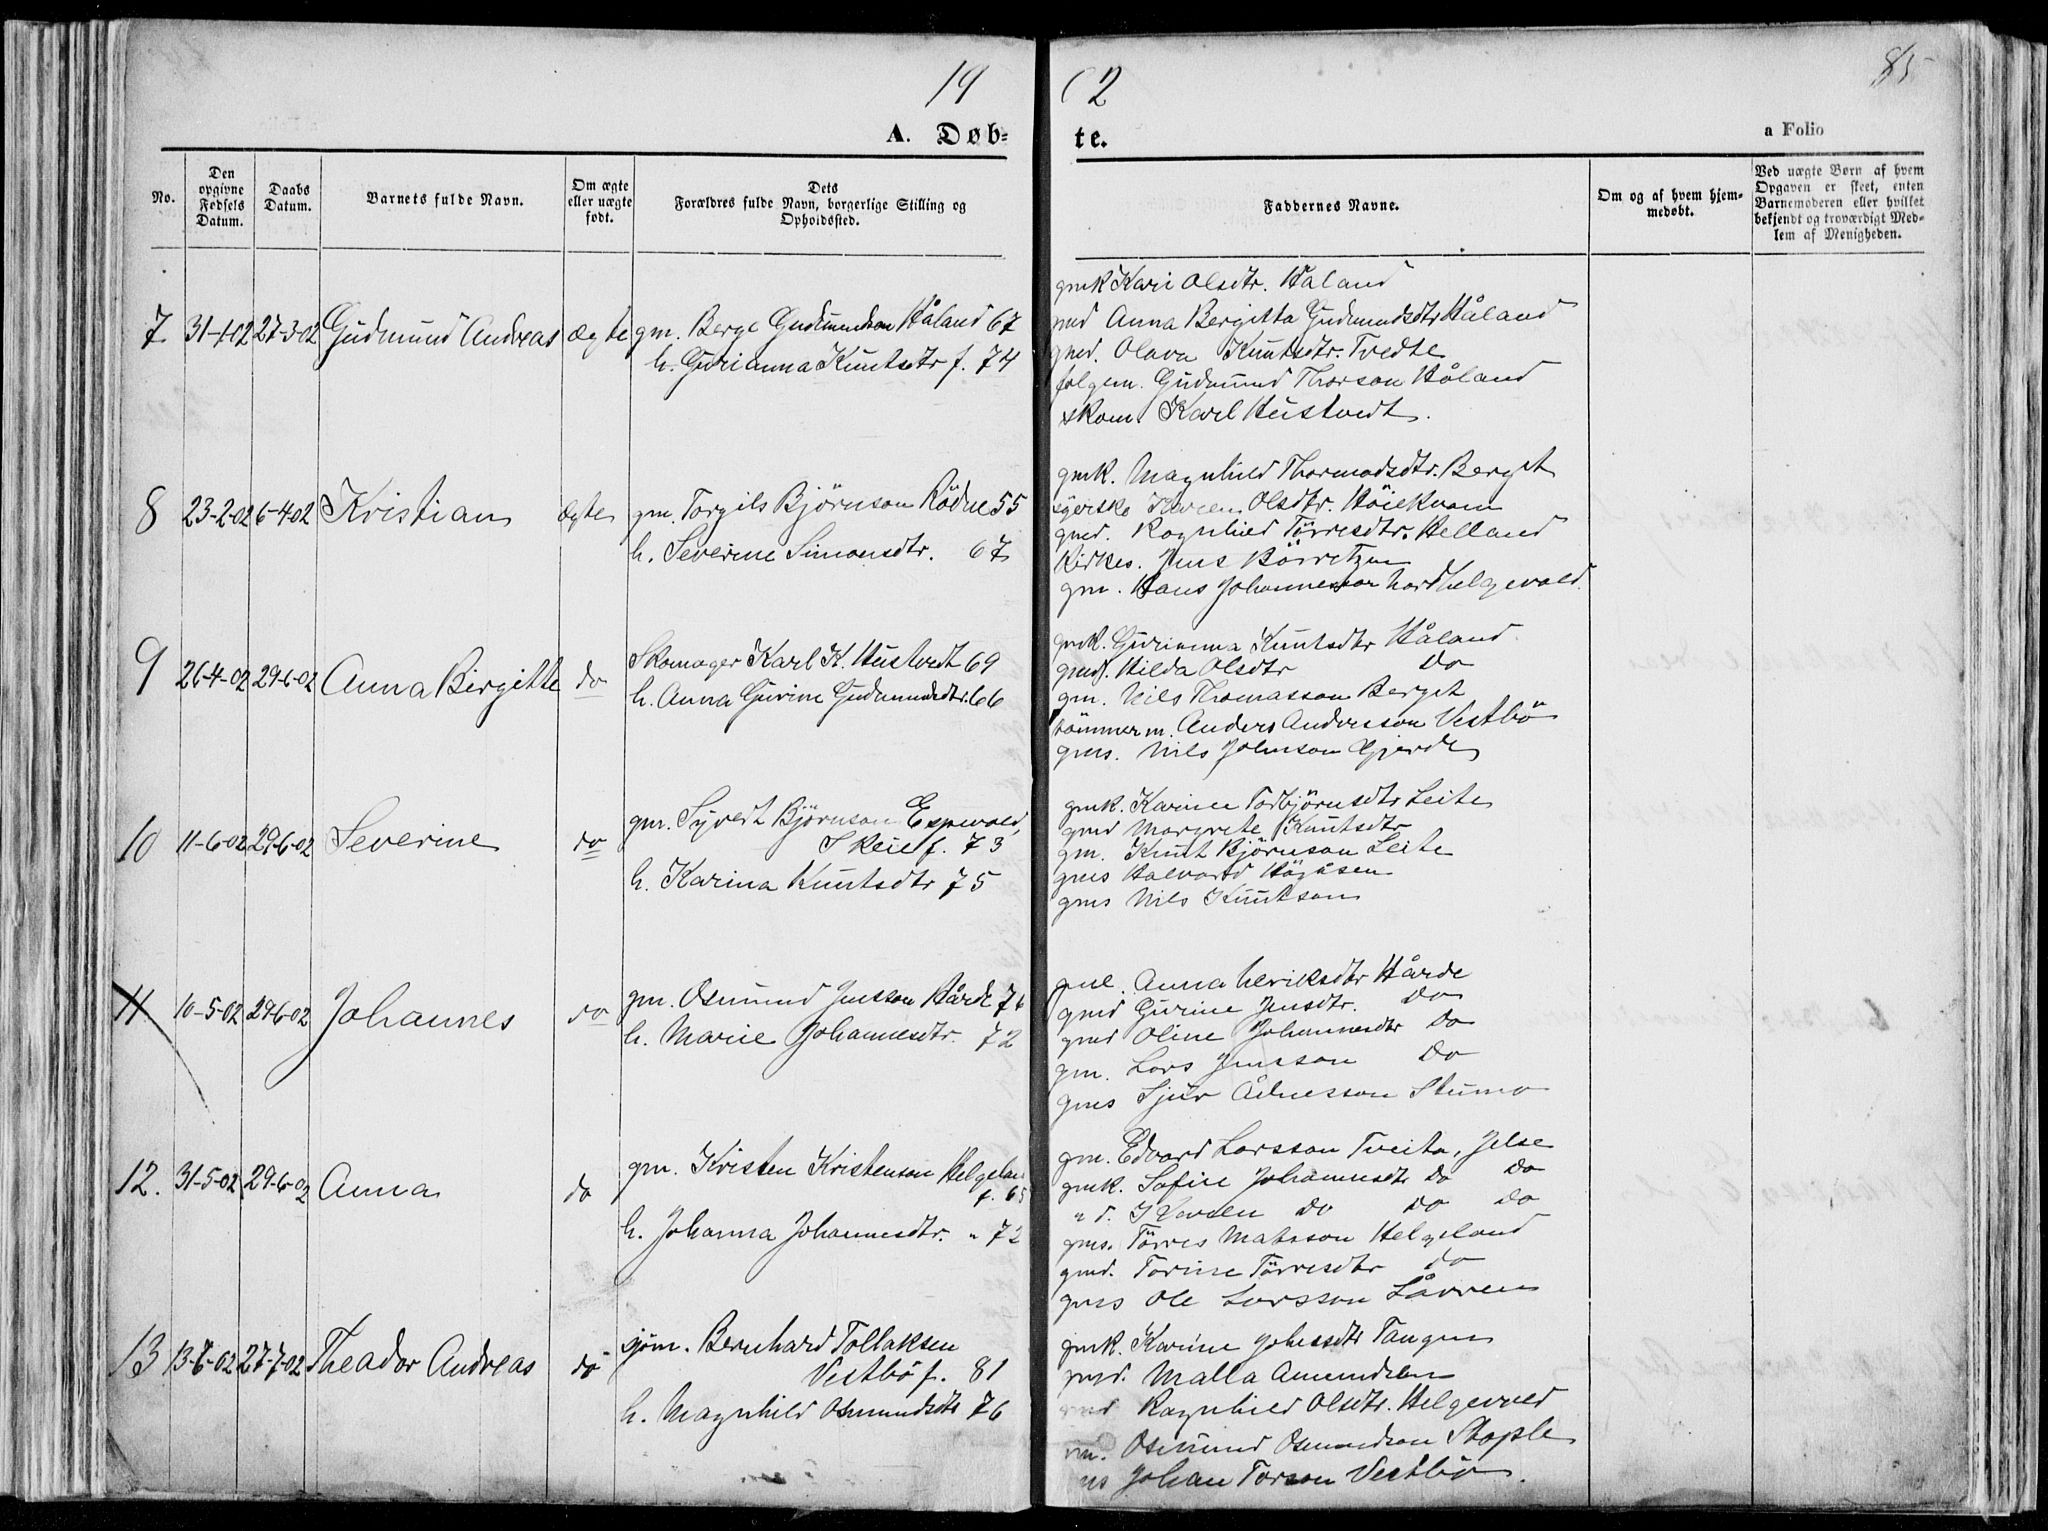 19 02 85
A. Døbte.
a Folio
No.
Den opgivne Fødsels Datum.
Daabs Datum.
Barnets fulde Navn.
Om ægte eller uægte født.
Dets Forældres fulde Navn, borgerlige Stilling og Opholdssted.
Faddernes Navne.
Om og af hvem hjemmedøbt.
Ved uægte Børn af hvem Opgaven er skeet, enten Barnemoderen eller hvilket bekjendt og troværdigt Medlem af Menigheden.
7 31-1-02 27-3-02 Gudmund Andreas ægte
gm. Berge Gudmundson Håland 67
h. Gurianna Knutsdtr f. 74
gmk Kari Olsdtr. Håland
gmd Anna Bergitta Gudmundsdtr Håland
gmd. Olava Knutsdtr. Tvedte
folgem. Gudmund Thorson Håland
skom. Karl Hustvedt.
8 23-2-02 6-4-02 Kristian ægte
gm. Torgils Bjørnson Rödne 55
h. Severine Simonsdtr. 67
gmk. Magnhild Thormodsdtr. Berget
syerske Karen Olsdtr. Höiekvam
gmd. Ragnhild Törresdtr. Helland
Kirkes. Jens Börretzen
gm. Hans Johannesson nordhelgevold.
9 26-4-02 29-6-02 Anna Birgitte do
Skomager Karl K. Hustvedt 69
h. Anna Gurine Gudmundsdtr. 66
gmk. Gurianna Knutsdtr Håland
gmd. Hilda Olsdtr do
gm. Nils Thomasson Berget
tömmerm. Anders Andersson Vestbö
gms. Nils Johnson Gjerde
10 11-6-02 29-6-02 Severine do
gm. Syvert Björnson Espevold,
Skeie f. 73
h. Karina Knutsdtr 75
gmk. Karine Torbjörnsdtr Leite
gmd Margrete Knutsdtr
gm. Knut Björnson Leite
gms Halvard Högåsen
gms Nils Knutson
11. 10-5-02 29-6-02 Johannes do
gm. Osmund Jensson Hårde 76
h. Marie Johannesdtr. 72
Anna henriksdtr Hårde
gmd Gurine Jensdtr. do
gmd Oline Johannesdtr do
gm. Lars Jensson do
gms Sjur Ådnesson Stumo
12. 31-5-02 29-6-02 Anna do
gm. Kristen Kristenson Helgeland
f. 65
h. Johanna Johannesdtr. " 72
gm. Edvard Larsson Tveita, Jelse
gmk. Sofie Johannesdtr do do
" d. Karen do do do
gms. Törres Matsson Helgeland
gmd. Torine Törresdtr do
gms Ole Larsson Låvren
13 13-6-02 27-7-02 Theador Andreas do
sjöm. Bernhard Tollaksen
Vestbö f. 81
h. Magnhild Osmundsdtr 76
gmk. Karine Tangen
gmd. Malla Amundsen
gmd Ragnhild Olsdtr. Helgevold
gm. Osmund Osmundson Stople
gms Johan Torson Vestbö.